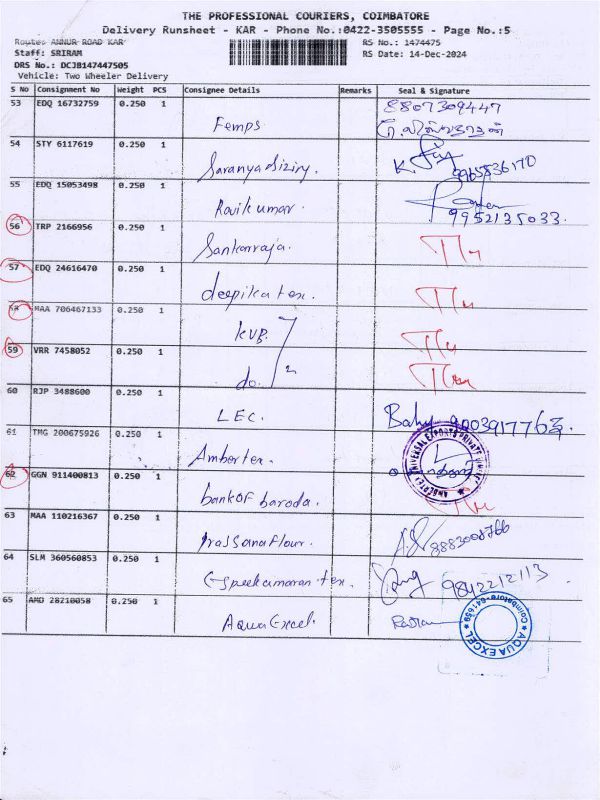 THE PROFESSIONAL COURIERS, COIMBATORE
Delivery Runsheet - KAR - Phone No.:0422-3505555 - Page No.:5
Route: ANNUR ROAD KAR
RS No.: 1474475
Staff: SRIRAM
RS Date: 14-Dec-2024
DRS No.: DCJB147447505
Vehicle: Two Wheeler Delivery
S No Consignment No Weight PCS Consignee Details Remarks Seal & Signature
53 EDQ 16732759 0.250 1 Femps 8807309447
54 STY 6117619 0.250 1 Saranya 9965836170
55 EDQ 15053498 0.250 1 Ravikumar. 9952135033.
56 TRP 2166956 0.250 1 Sankarraja.
57 EDQ 24616470 0.250 1 deepika tex.
58 MAA 706467133 0.250 1 KVB.
59 VRR 7458052 0.250 1 do. 2
60 RJP 3488600 0.250 1 LEC.
61 TMG 200675926 0.250 1 Ambertex. AMBERTEX UNIVERSAL EXPORTS PRIVATE LIMITED
62 GGN 911400813 0.250 1 bank of baroda.
63 MAA 110216367 0.250 1 Prassanaflour. 8883008766
64 SLM 360560853 0.250 1 9842212113
65 AMD 28210058 0.250 1 Aqua Excel. AQUA EXCEL Coimbatore-641659